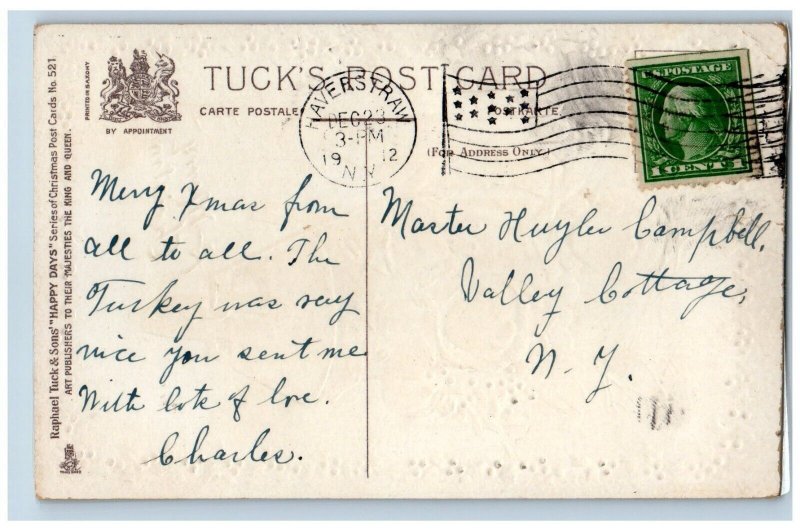 TUCK'S POST CARD
CARTE POSTALE
POSTKARTE
(FOR ADDRESS ONLY.)
BY APPOINTMENT
PRINTED IN SAXONY
Raphael Tuck & Sons' "HAPPY DAYS" Series of Christmas Post Cards No. 521
ART PUBLISHERS TO THEIR MAJESTIES THE KING AND QUEEN.
HAVERSTRAW
DEC 23
3-PM
19 12
N.Y.
U.S. POSTAGE
1 CENT 1
Merry Xmas from
all to all. The
Turkey was very
nice you sent me
With lots of love.
Charles.
Master Huyler Campbell.
Valley Cottage,
N. Y.